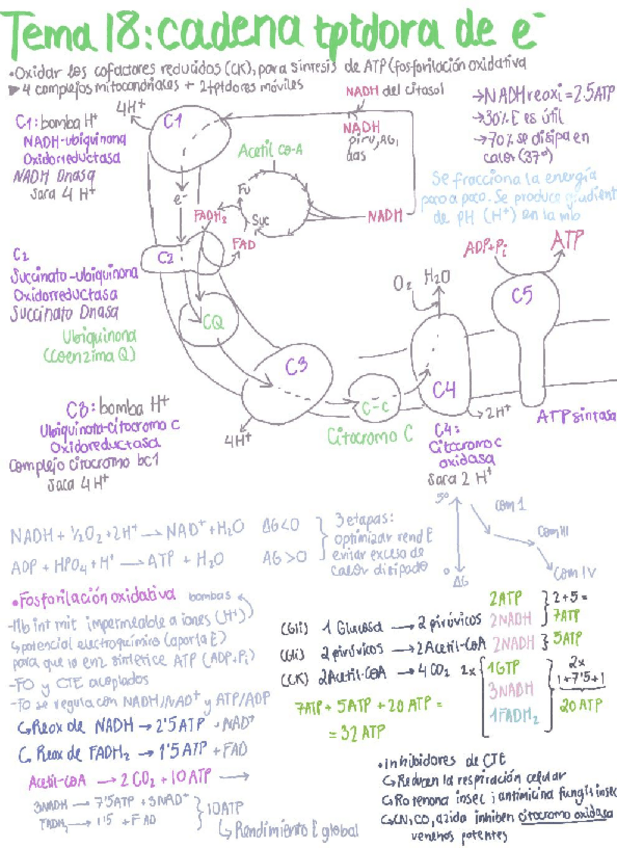 Tema 18: cadena tptdora de e⁻
•Oxidar los cofactores reducidos (CK), para síntesis de ATP (fosforilación oxidativa
▶ 4 complejos mitocondriales + 2 tptdores móviles
4H⁺
C1: bomba H⁺
NADH-ubiquinona
Oxidorreductasa
NADH Dnasa
saca 4 H⁺
C1
e⁻
Acetil CO-A
Fu
Suc
FADH₂
FAD
NADH del citosol
NADH
piru, AG,
aas
NADH
→NADH reoxi = 2'5 ATP
→30% E es útil
→70% se disipa en
calor (37º)
Se fracciona la energía
poco a poco. Se produce gradiente
de PH (H⁺) en la mb
C2
Succinato-ubiquinona
Oxidorreductasa
Succinato Dnasa
C2
Ubiquinona
(coenzima Q)
CQ
C3
4H⁺
C3: bomba H⁺
Ubiquinato-citocromo C
Oxidoreductasa
Complejo citocromo bc1
saca 4 H⁺
C-c
Citocromo C
O₂
H₂O
C4
2H⁺
C4:
Citocromo c
oxidasa
Sara 2 H⁺
ADP+Pi
ATP
C5
ATP sintasa
NADH + ½O₂ + 2H⁺ → NAD⁺ + H₂O ΔG<0
ADP + HPO₄ + H⁺ → ATP + H₂O ΔG>0
3 etapas:
optimizar rend E
evitar exceso de
calor disipado
com I
Com III
Com IV
ΔG
•Fosforilación oxidativa bombas
-Mb int mit impermeable a iones (H⁺)
↳potencial electroquímico (aporta E)
para que la enz sintetice ATP (ADP+Pi)
-FO y CTE acoplados
-FO se regula con NADH/NAD⁺ y ATP/ADP
↳Reox de NADH → 2'5 ATP + NAD⁺
↳Reox de FADH₂ → 1'5 ATP + FAD
Acetil-CoA → 2 CO₂ + 10 ATP →
3NADH → 7'5ATP + 3NAD⁺
FADH₂ → 1'5 + FAD
10ATP
↳Rendimiento E global
(Gli) 1 Glucosa → 2 pirúvicos 2ATP 2NADH } 2+5= 7ATP
(Gli) 2 pirúvicos → 2Acetil-CoA 2NADH } 5ATP
(CK) 2Acetil-CoA → 4 CO₂ 2x [ 1GTP 3NADH 1FADH₂ ] 2x 1+7'5+1 20 ATP
7ATP + 5ATP + 20 ATP =
= 32 ATP
•Inhibidores de CTE
↳Reducen la respiración celular
↳Rotenona insec; antimicina fungis insec
↳CN, CO, azida inhiben citocromo oxidasa
venenos potentes